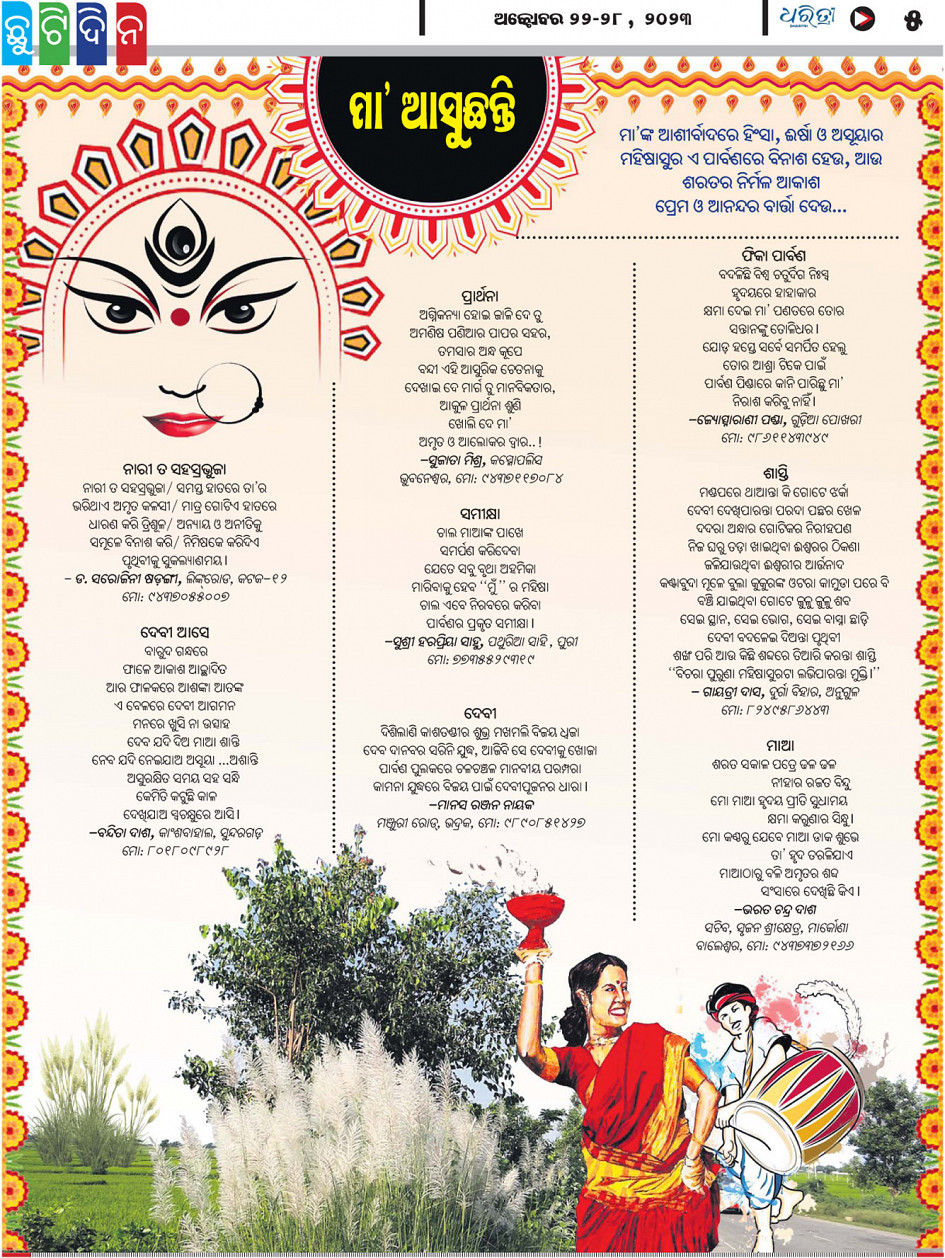 ଛୁଟିଦିନ
ଅକ୍ଟୋବର ୨୨-୨୮ , ୨୦୨୩
ଧରିତ୍ରୀ
୫
ମା' ଆସୁଛନ୍ତି
ମା'ଙ୍କ ଆଶୀର୍ବାଦରେ ହିଂସା, ଈର୍ଷା ଓ ଅସୂୟାର
ମହିଷାସୁର ଏ ପାର୍ବଣରେ ବିନାଶ ହେଉ, ଆଉ
ଶରତର ନିର୍ମଳ ଆକାଶ
ପ୍ରେମ ଓ ଆନନ୍ଦର ବାର୍ତ୍ତା ଦେଉ...
ନାରୀ ତ ସହସ୍ରଭୁଜା
ନାରୀ ତ ସହସ୍ରଭୁଜା/ ସମସ୍ତ ହାତରେ ତା'ର
ଭରିଥାଏ ଅମୃତ କଳସୀ/ ମାତ୍ର ଗୋଟିଏ ହାତରେ
ଧାରଣ କରି ତ୍ରିଶୂଳ/ ଅନ୍ୟାୟ ଓ ଅନୀତିକୁ
ସମୂଳେ ବିନାଶ କରି/ ନିମିଷକେ କରିଦିଏ
ପୃଥିବୀକୁ ସୁକଲ୍ୟାଣମୟ।
- ଡ. ସରୋଜିନୀ ଷଡ଼ଙ୍ଗୀ, ଲିଙ୍କ୍‌ରୋଡ, କଟକ-୧୨
ମୋ: ୯୪୩୭୦୫୫୦୦୭
ଦେବୀ ଆସେ
ବାରୁଦ ଗନ୍ଧରେ
ଫାଳେ ଆକାଶ ଆଚ୍ଛାଦିତ
ଆର ଫାଳକରେ ଆଶଙ୍କା ଆତଙ୍କ
ଏ ବେଳରେ ଦେବୀ ଆଗମନ
ମନରେ ଖୁସି ନା ଉତ୍ସାହ
ଦେବ ଯଦି ଦିଅ ମାଆ ଶାନ୍ତି
ନେବ ଯଦି ନେଇଯାଅ ଅସୂୟା ...ଅଶାନ୍ତି
ଅସୁରକ୍ଷିତ ସମୟ ସହ ସନ୍ଧି
କେମିତି କଟୁଛି କାଳ
ଦେଖିଯାଅ ସ୍ୱଚକ୍ଷୁରେ ଆସି।
-ବନ୍ଦିତା ଦାଶ, କାଂଶବାହାଲ, ସୁନ୍ଦରଗଡ଼
ମୋ: ୮୦୧୮୦୯୮୯୨୮
ପ୍ରାର୍ଥନା
ଅଗ୍ନିକନ୍ୟା ହୋଇ ଜାଳି ଦେ ତୁ
ଅମଣିଷ ପଣିଆର ପାପର ସହର,
ତମସାର ଅନ୍ଧ କୂପେ
ବନ୍ଦୀ ଏହି ଆସୁରିକ ଚେତନାକୁ
ଦେଖାଇ ଦେ ମାର୍ଗ ତୁ ମାନବିକତାର,
ଆକୁଳ ପ୍ରାର୍ଥନା ଶୁଣି
ଖୋଲି ଦେ ମା'
ଅମୃତ ଓ ଆଲୋକର ଦ୍ୱାର..!
-ସୁଜାତା ମିଶ୍ର, କସ୍ମୋପଲିସ
ଭୁବନେଶ୍ୱର, ମୋ: ୯୪୩୭୧୧୭୦୮୪
ସମୀକ୍ଷା
ଚାଲ ମାଆଙ୍କ ପାଖେ
ସମର୍ପଣ କରିଦେବା
ଯେତେ ସବୁ ବୃଥା ଅହମିକା
ମାରିବାକୁ ହେବ ''ମୁଁ'' ର ମହିଷା
ଚାଲ ଏବେ ନିରବରେ କରିବା
ପାର୍ବଣର ପ୍ରକୃତ ସମୀକ୍ଷା।
-ସୁଶ୍ରୀ ହରପ୍ରିୟା ସାହୁ, ପଥୁରିଆ ସାହି, ପୁରୀ
ମୋ: ୭୭୩୫୫୨୯୩୧୯
ଦେବୀ
ଦିଶିଲାଣି କାଶତଣ୍ଡୀର ଶୁଭ୍ର ମଖମଲି ବିଜୟ ଧ୍ୱଜା
ଦେବ ଦାନବର ସରିନି ଯୁଦ୍ଧ, ଆଜିବି ସେ ଦେବୀକୁ ଖୋଜା
ପାର୍ବଣ ପୁଲକରେ ଚଳଚଞ୍ଚଳ ମାନବୀୟ ପରମ୍ପରା
କାମନା ଯୁଦ୍ଧରେ ବିଜୟ ପାଇଁ ଦେବୀପୂଜନର ଧାରା।
-ମାନସ ରଞ୍ଜନ ନାୟକ
ମଞ୍ଜୁରୀ ରୋଡ୍, ଭଦ୍ରକ, ମୋ: ୯୮୯୦୮୫୧୪୨୭
ଫିକା ପାର୍ବଣ
ବଦଳିଛି ବିଶ୍ୱ ଚତୁର୍ଦ୍ଦିଗ ନିଃସ୍ୱ
ହୃଦୟରେ ହାହାକାର
କ୍ଷମା ଦେଇ ମା' ପଣତରେ ତୋର
ସନ୍ତାନଙ୍କୁ ତୋଳିଧର।
ଯୋଡ଼ ହସ୍ତେ ସର୍ବେ ସମର୍ପିତ ହେଲୁ
ତୋର ଆଶ୍ରା ଟିକେ ପାଇଁ
ପାର୍ବଣ ପିଣ୍ଡାରେ କାନି ପାରିଛୁ ମା'
ନିରାଶ କରିବୁ ନାହିଁ।
-ଜ୍ୟୋତ୍ସ୍ନାରାଣୀ ପଣ୍ଡା, ଗୁଡ଼ିଆ ପୋଖରୀ
ମୋ: ୯୮୬୧୧୪୩୯୪୯
ଶାସ୍ତି
ମଣ୍ଡପରେ ଥାଆନ୍ତା କି ଗୋଟେ ଝର୍କା
ଦେବୀ ଦେଖିପାରନ୍ତା ପରଦା ପଛର ଖେଳ
ଦଦରା ଅନ୍ଧାର ଗୋଟିକର ନିରୀହପଣ
ନିଜ ଘରୁ ତଡ଼ା ଖାଇଥିବା ଈଶ୍ୱରର ଠିକଣା
ଜଳିଯାଉଥିବା ଈଶ୍ୱରୀର ଆର୍ତ୍ତନାଦ
କଣ୍ଟାବୁଦା ମୂଳେ ବୁଲା କୁକୁରଙ୍କ ଓଟରା କାମୁଡ଼ା ପରେ ବି
ବଞ୍ଚି ଯାଇଥିବା ଗୋଟେ କୁନୁ କୁନୁ ଶବ
ସେଇ ସ୍ଥାନ, ସେଇ ଭୋଗ, ସେଇ ବାସ୍ନା ଛାଡ଼ି
ଦେବୀ ବଦଳେଇ ଦିଅନ୍ତା ପୃଥିବୀ
ଶଙ୍ଖ ପରି ଆଉ କିଛି ଶବ୍ଦରେ ତିଆରି କରନ୍ତା ଶାସ୍ତି
''ବିଚରା ପୁରୁଣା ମହିଷାସୁରଟା ଲଭିପାରନ୍ତା ମୁକ୍ତି।''
- ଗାୟତ୍ରୀ ଦାସ, ଦୁର୍ଗା ବିହାର, ଅନୁଗୁଳ
ମୋ: ୮୨୪୯୫୮୬୪୪୩
ମାଆ
ଶରତ ସକାଳ ପତ୍ରେ ଢଳ ଢଳ
ନୀହାର ରଜତ ବିନ୍ଦୁ
ମୋ ମାଆ ହୃଦୟ ପ୍ରୀତି ସୁଧାମୟ
କ୍ଷମା କରୁଣାର ସିନ୍ଧୁ।
ମୋ କଣ୍ଠରୁ ଯେବେ ମାଆ ଡାକ ଶୁଭେ
ତା' ହୃଦ ତରଳିଯାଏ
ମାଆଠାରୁ ବଳି ଅମୃତର ଶବ୍ଦ
ସଂସାରେ ଦେଖିଛି କିଏ।
-ଭରତ ଚନ୍ଦ୍ର ଦାଶ
ସଚିବ, ସୃଜନ ଶ୍ରୀକ୍ଷେତ୍ର, ମାର୍କୋଣା
ବାଲେଶ୍ୱର, ମୋ: ୯୪୩୭୩୭୨୧୬୬